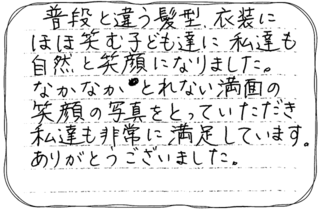 普段と違う髪型、衣装に
ほほ笑む子ども達に 私達も
自然と笑顔になりました。
なかなかとれない満面の
笑顔の写真をとっていただき
私達も非常に満足しています。
ありがとうございました。